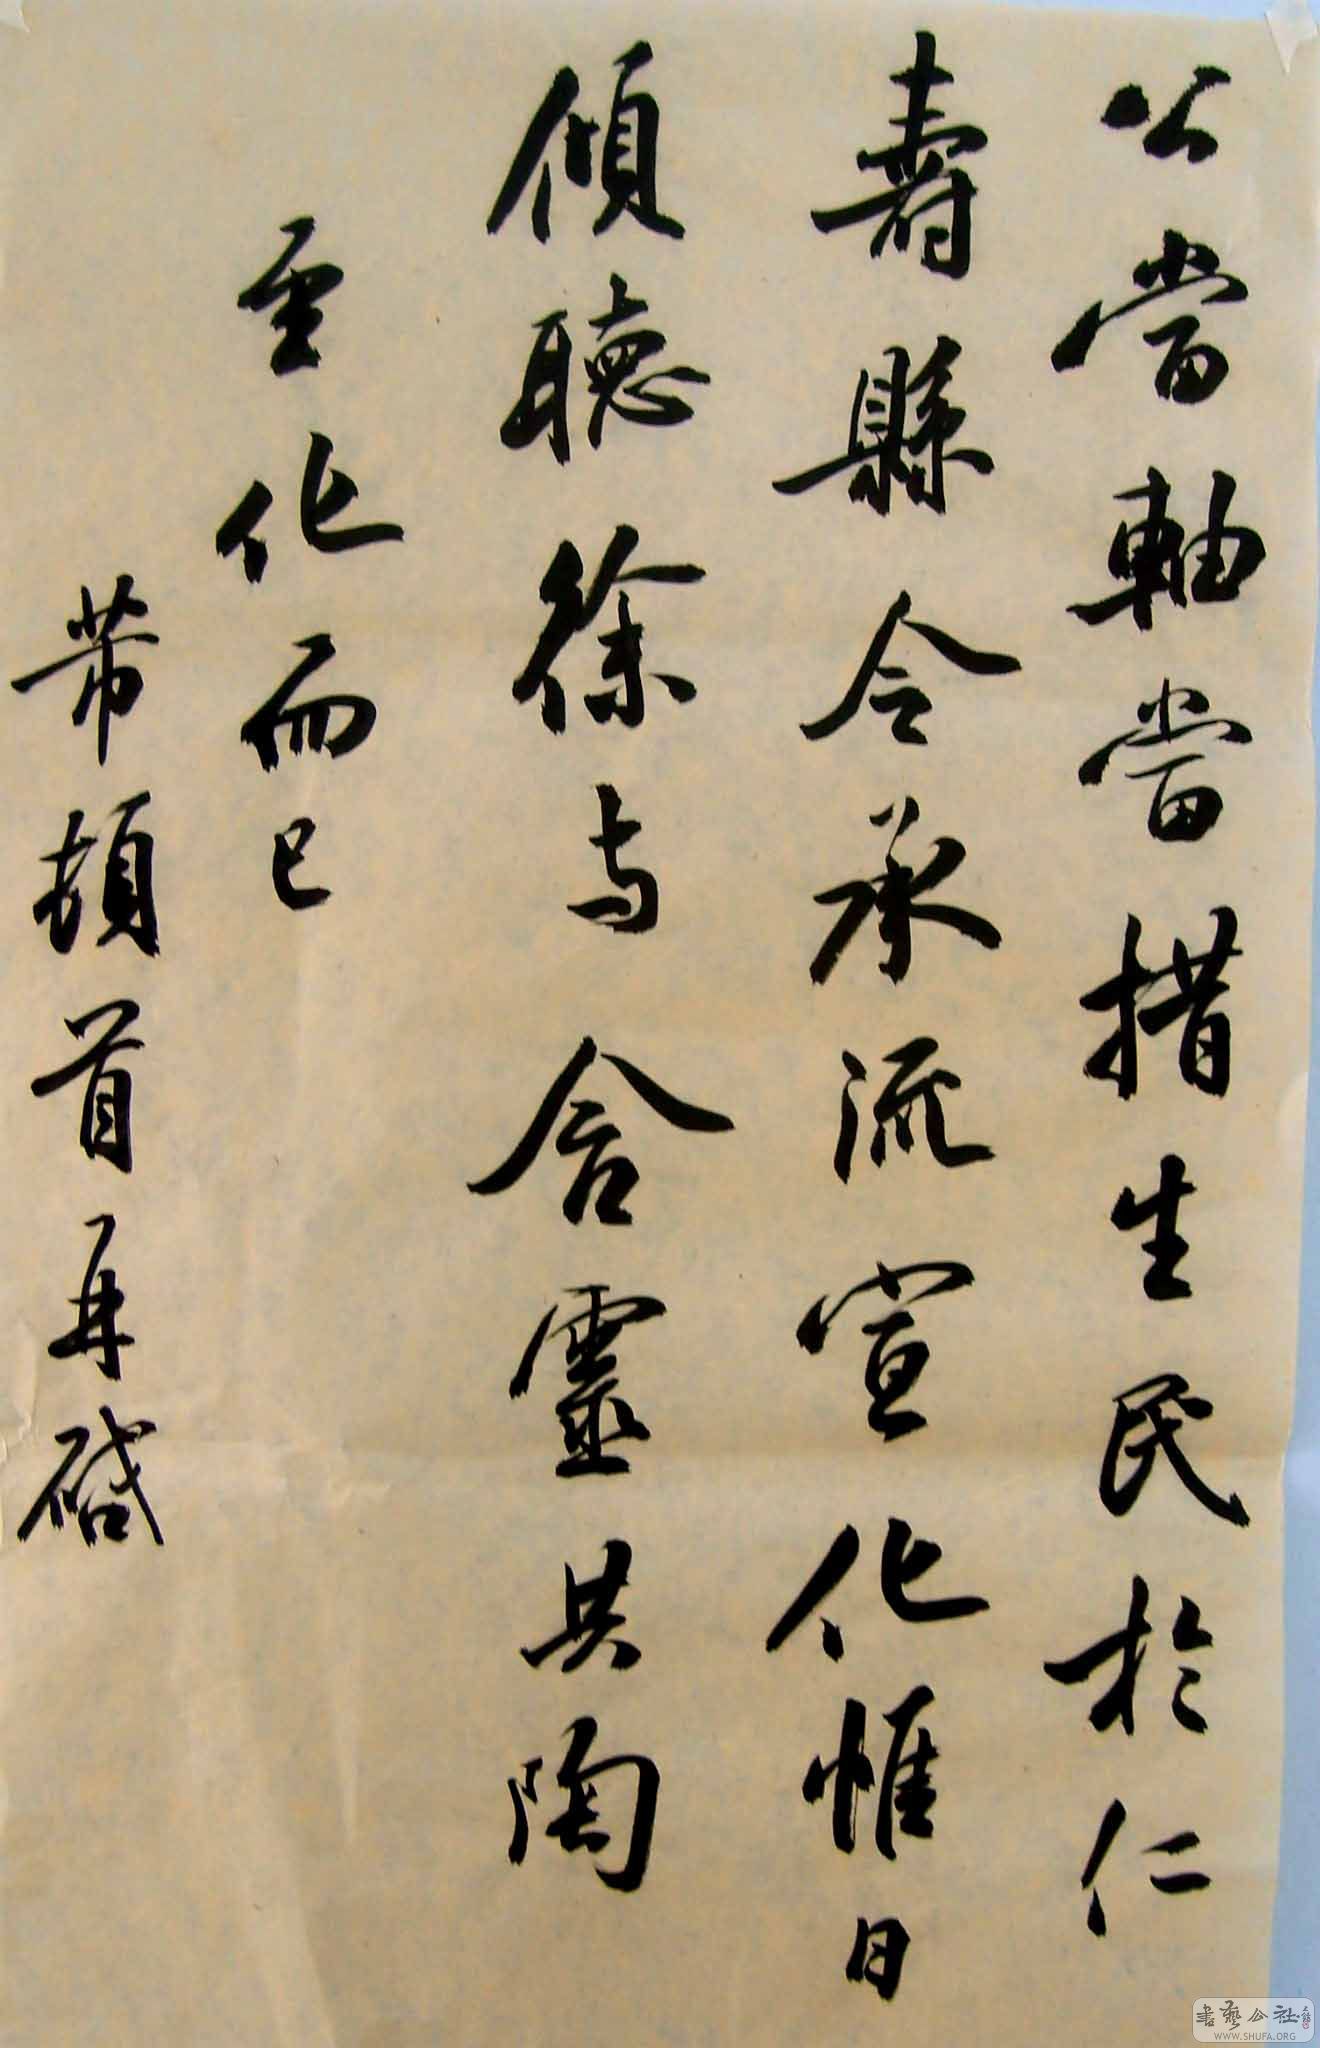 公當軸當措生民於仁
壽縣令承流宣化惟日
傾聽徐与含靈共陶
至化而已
芾頓首再啓
書藝公社
WWW.SHUFA.ORG